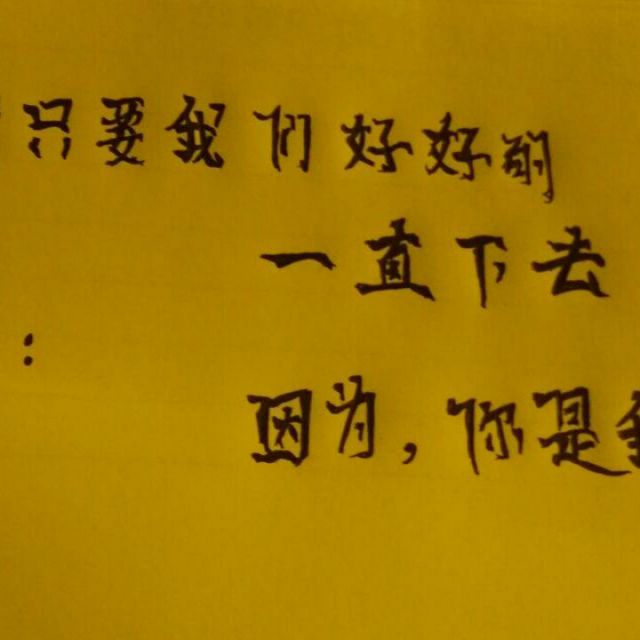 只要我们好好的
一直下去
:
因为,你是